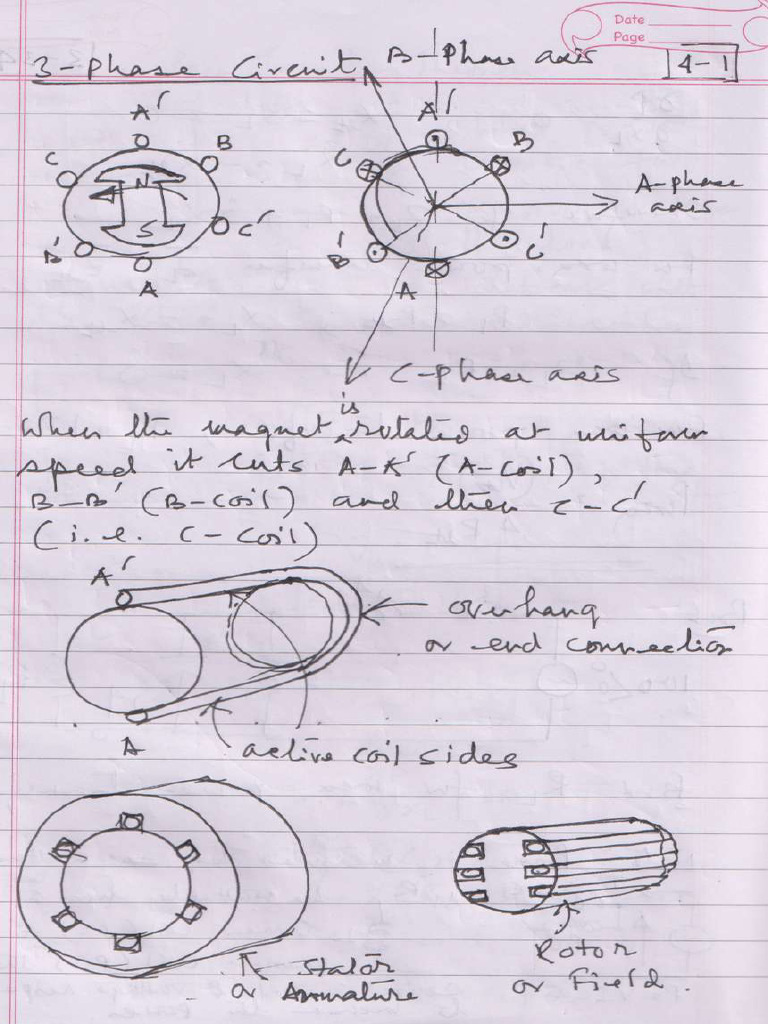 Date
Page
4-1
3-phase Circuit
B-phase axis
A'
B
C
N
S
C'
B'
A
A'
B
C
A-phase axis
C'
B'
A
C-phase axis
When the magnet is rotated at uniform
speed it cuts A-A' (A-coil),
B-B' (B-coil) and then C-C'
(i.e. C-coil)
A'
overhang
or end connection
A
active coil sides
Stator
or Armature
Rotor
or Field.